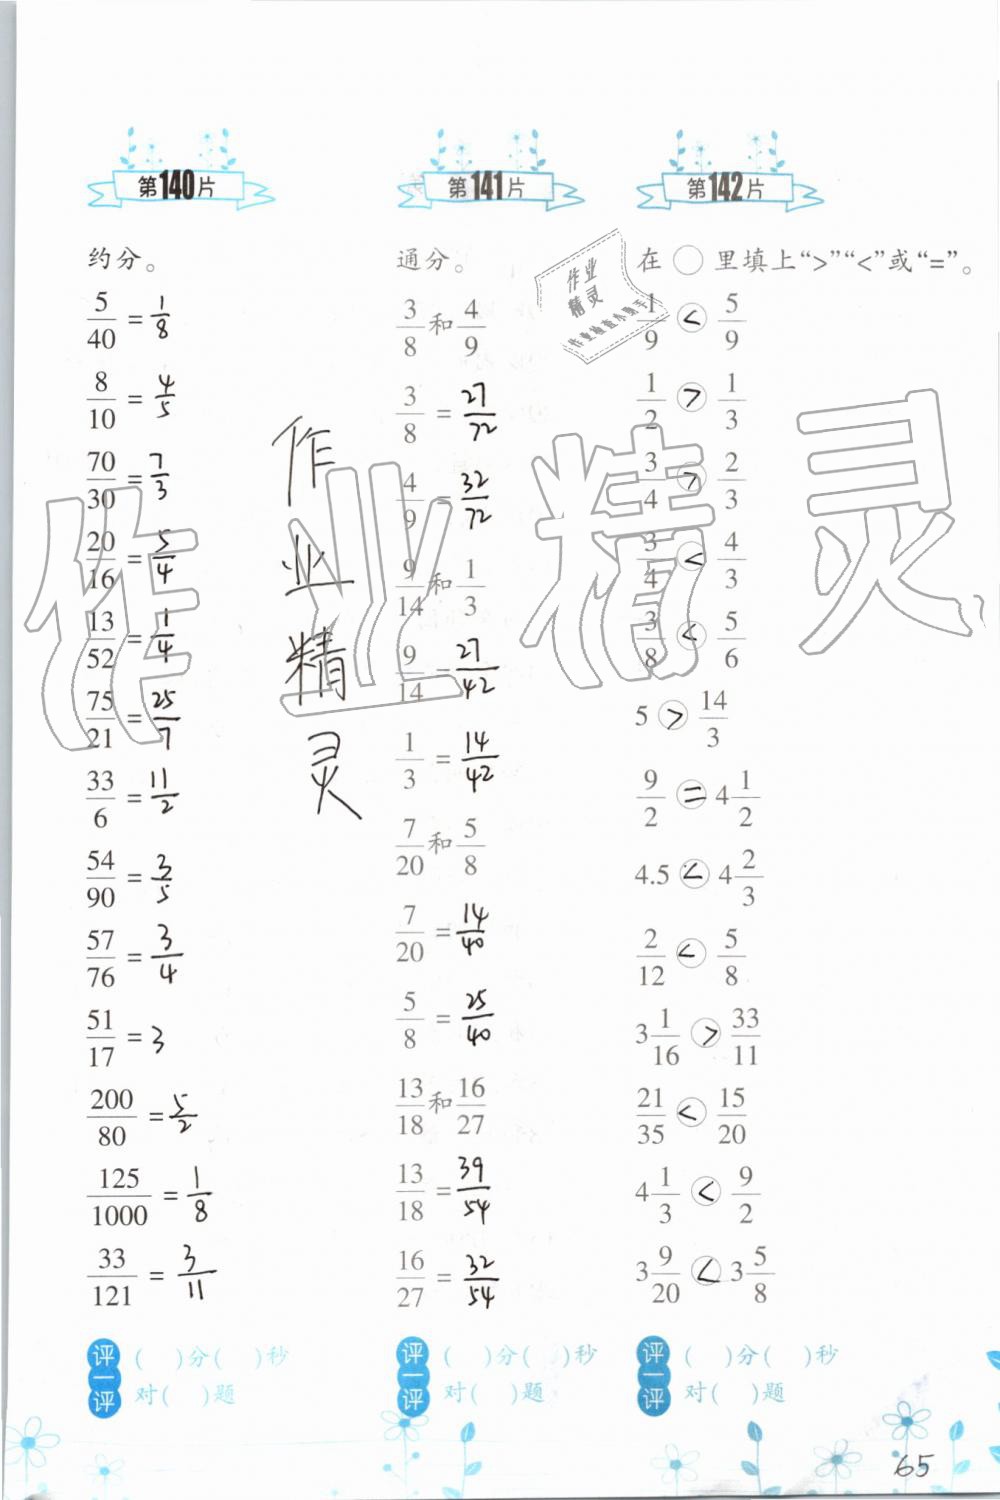 第140片
约分。
5/40 = 1/8
8/10 = 4/5
70/30 = 7/3
20/16 = 5/4
13/52 = 1/4
75/21 = 25/7
33/6 = 11/2
54/90 = 3/5
57/76 = 3/4
51/17 = 3
200/80 = 5/2
125/1000 = 1/8
33/121 = 3/11
评一评 ( )分( )秒
对( )题
第141片
通分。
3/8 和 4/9
3/8 = 27/72
4/9 = 32/72
9/14 和 1/3
9/14 = 27/42
1/3 = 14/42
7/20 和 5/8
7/20 = 14/40
5/8 = 25/40
13/18 和 16/27
13/18 = 39/54
16/27 = 32/54
评一评 ( )分( )秒
对( )题
第142片
在 ○ 里填上“>”“<”或“=”。
1/9 < 5/9
1/2 > 1/3
3/4 > 2/3
3/4 < 4/3
3/8 < 5/6
5 > 14/3
9/2 = 4 1/2
4.5 < 4 2/3
2/12 < 5/8
3 1/16 > 33/11
21/35 < 15/20
4 1/3 < 9/2
3 9/20 < 3 5/8
评一评 ( )分( )秒
对( )题
作业精灵
作业精灵
作业
精灵
65